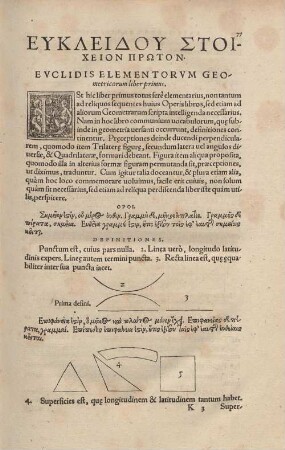 77
ΕΥΚΛΕΙΔΟΥ ΣΤΟΙ-
ΧΕΙΟΝ ΠΡΩΤΟΝ.
EVCLIDIS ELEMENTORVM GEO-
metricorum liber primus.
St hic liber primus totus ferè elementarius, non tantum
ad reliquos sequentes huius Operis libros, sed etiam ad
aliorum Geometrarum scripta intelligenda necessarius.
Nam in hoc libro communium uocabulorum, quę sub-
inde in geometria uersanti occurrunt, definitiones con-
tinentur. Pręceptiones deinde ducendi perpendicu-
lum, quomodo item Trilaterę figurę, secundum latera uel angulos di-
uersę, & Quadrilaterę, formari debeant. Figura item aliqua proposita,
quomodo illa in alterius formę figuram permutanda sit, pręceptiones,
ut diximus, traduntur. Cum igitur talia doceantur, & plura etiam alia,
quàm hoc loco commemorare uoluimus, facilè erit cuiuis, non solum
quàm sit necessarius, sed etiam ad reliqua perdiscenda liber iste quàm utilis,
perspicere.
ΟΡΟΙ.
Σημεῖόν ἐστιν, οὗ μέρος οὐθέν. Γραμμὴ δὲ, μῆκος ἀπλατές. Γραμμῆς δὲ
πέρατα, σημεῖα. Εὐθεῖα γραμμή ἐστιν, ἥτις ἐξ ἴσου τοῖς ἐφ' ἑαυτῆς σημείοις
κεῖται.
DEFINITIONES.
Punctum est, cuius pars nulla. 2. Linea uerò, longitudo latitu-
dinis expers. Lineę autem termini puncta. 3. Recta linea est, quę ęqua-
biliter inter sua puncta iacet.
2
Prima defini. 3
Ἐπιφάνεια δέ ἐστιν, ὃ μῆκος καὶ πλάτος μόνον ἔχει. Ἐπιφανείας δὲ πέ-
ρατα, γραμμαί. Ἐπίπεδος ἐπιφάνειά ἐστιν, ἥτις ἐξ ἴσου ταῖς ἐφ' ἑαυτῆς εὐθείαις
κεῖται.
5
4. Superficies est, quę longitudinem & latitudinem tantum habet.
K 3 Super-